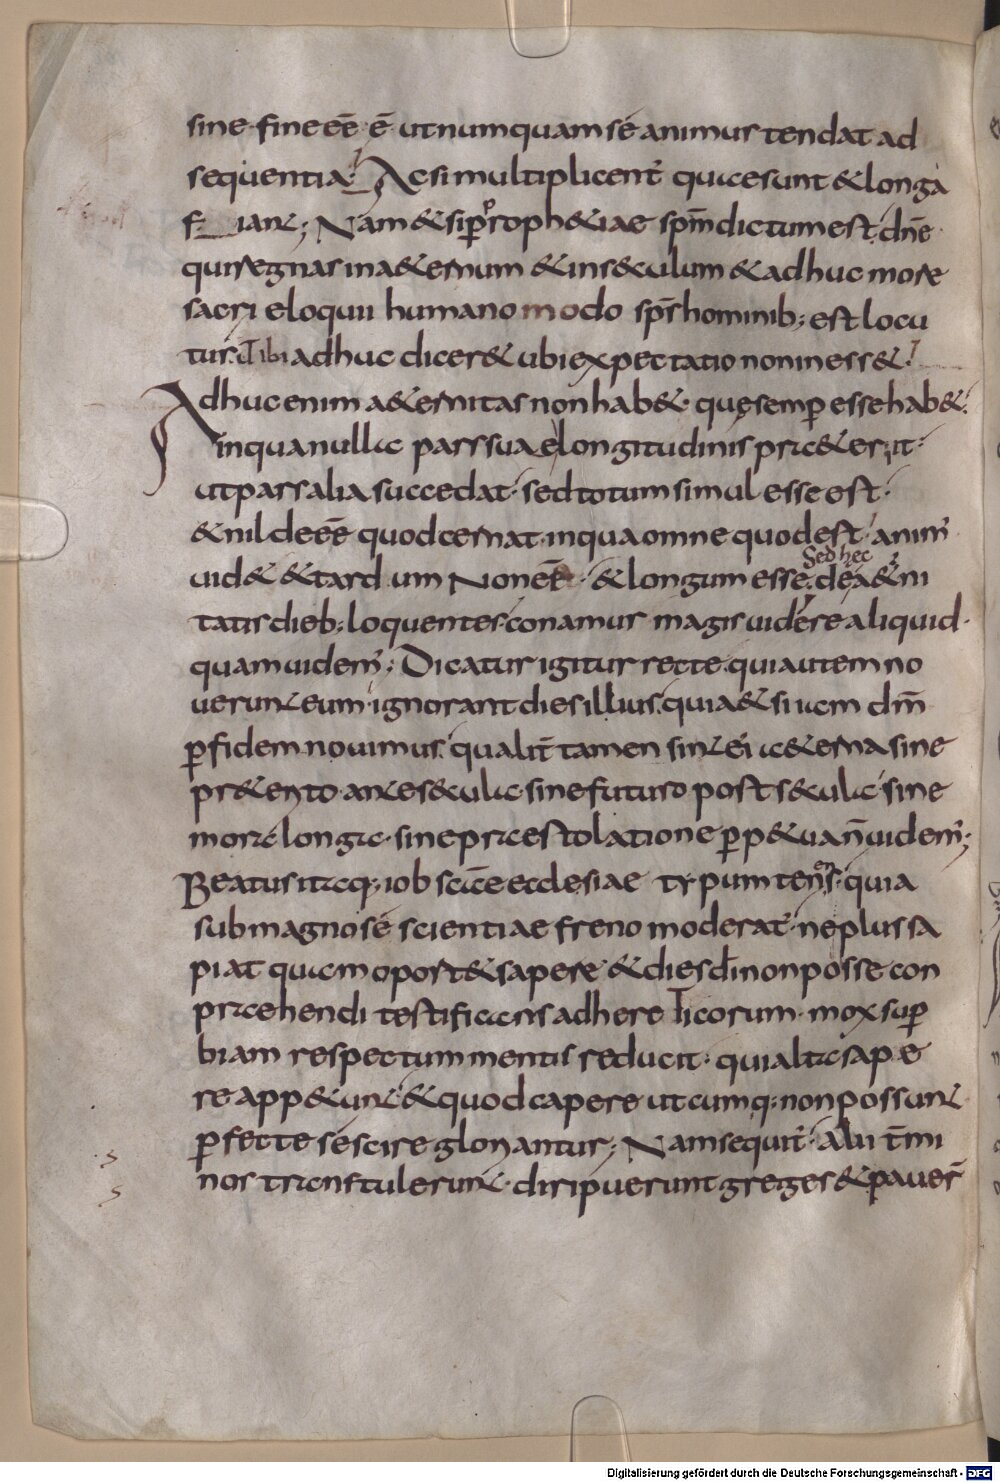 sine fine eē ē ut numquam sé animus tendat ad
sequentia Ac si multiplicent̄ quae sunt & longa
Nam & si prophetiae sp̄m dictum est dn̄e
qui regnas in a&ernum & in s&culum & adhuc more
sacri eloquii humano modo sp̄s hominib; est locu
tus tibi adhuc dicer& ubi expectatio non iness&
Adhuc enim a&ernitas non hab& quę semp̄ esse hab&
in qua nulla pars suae longitudinis pr&erit
ut pars alia succedat sed totum simul esse est
& nil deeē quod cernat in qua omne quod est anim̄
uid& & tardum Non eē & longum esse Sed hęc de a&erni
tatis dieb; loquentes conamur magis uidere aliquid
quam uidem̄; Dicatur igitur recte qui autem no
uerunt eum ignorant dies illius quia & si iam dm̄
p̄ fidem nouimus qualit̄ tamen sint ei a&erna sine
pr&erito ante s&ula sine futuro post s&ula sine
morae longa sine praestolatione p̄p&ua n̄ uidem̄;
Beatus itaq; iob scāe ecclesiae typum tenens quia
sub magno sé scientiae freno moderat̄ ne plus sa
piat quam oport& sapere & dies dī non posse con
praehendi testificans ad hereticorum mox sup̄
biam respectum mentis reducit qui alta sape
re app&unt & quod capere utcumq; non possunt
p̄fecte sé scire gloriantur; Nam sequit̄ Alii t̄mi
nos transtulerunt diripuerunt greges & pauer̄
Digitalisierung gefördert durch die Deutsche Forschungsgemeinschaft - DFG